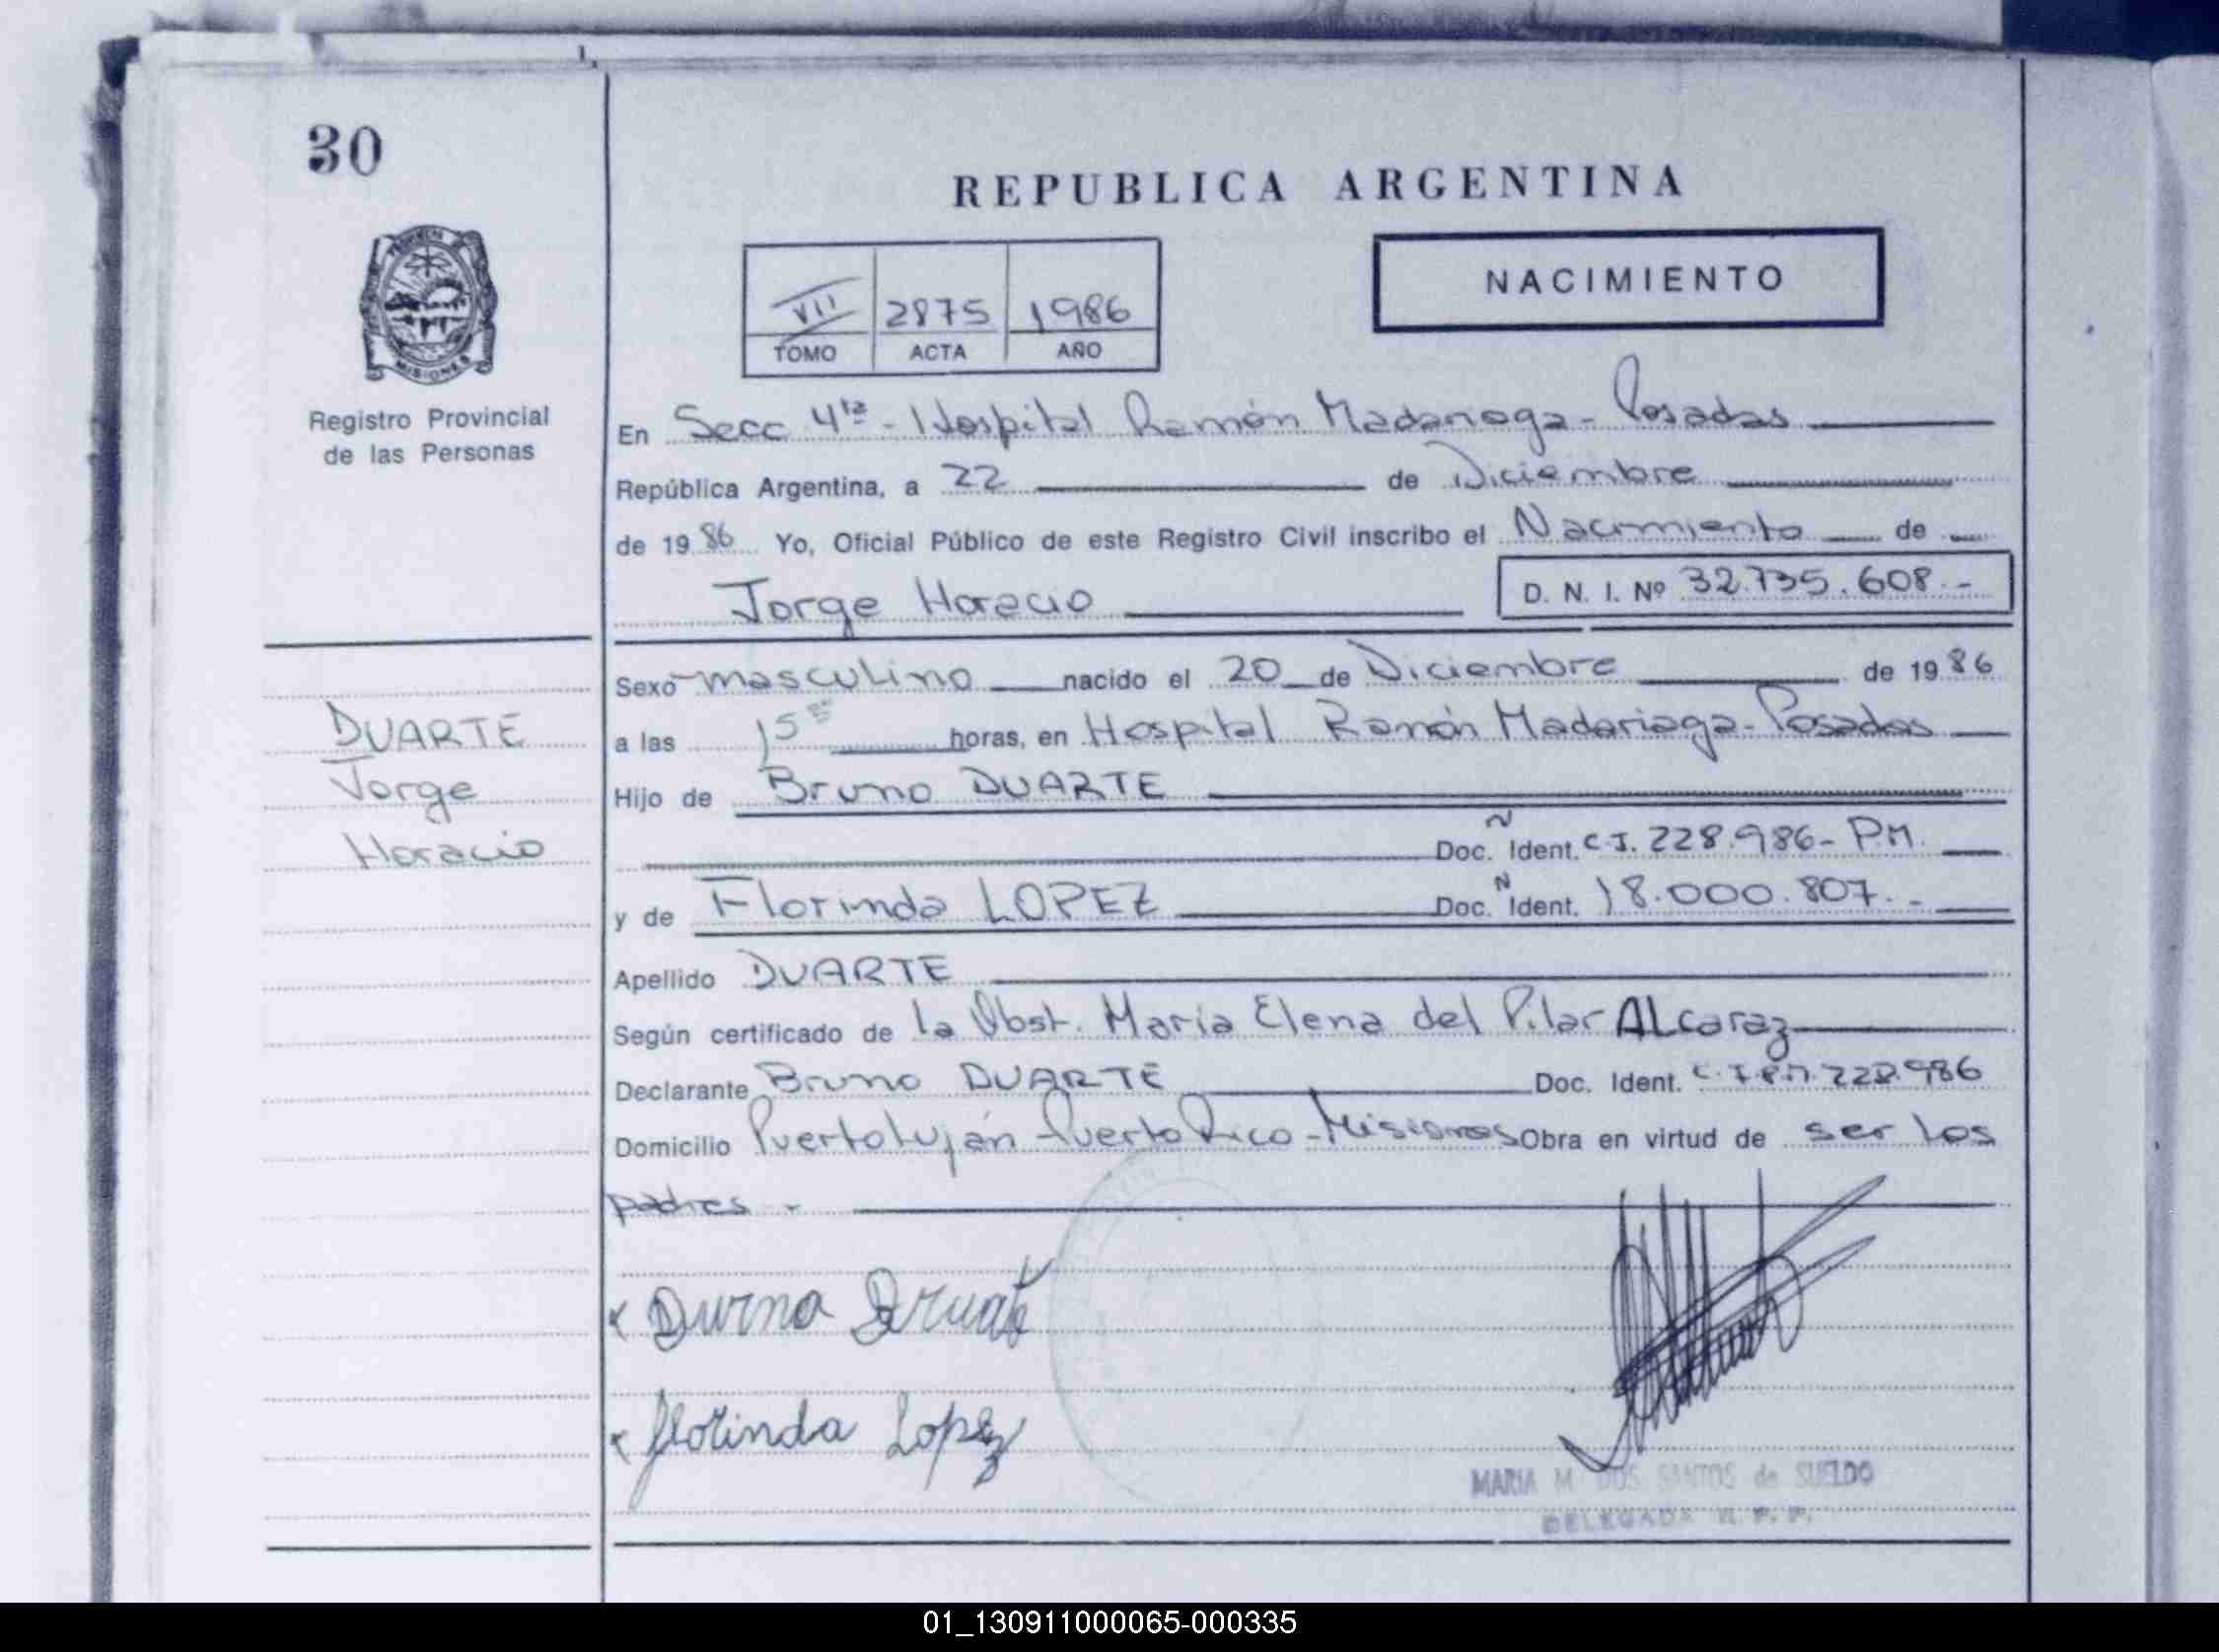 30
REPUBLICA ARGENTINA
NACIMIENTO
VII 2875 1986
TOMO ACTA AÑO
MISIONES
Registro Provincial
de las Personas
En Secc 4ta - Hospital Ramón Madariaga - Posadas
República Argentina, a 22 de Diciembre
de 1986 Yo, Oficial Público de este Registro Civil inscribo el Nacimiento de
Jorge Horacio D. N. I. Nº 32.735.608.-
Sexo masculino nacido el 20 de Diciembre de 1986
DUARTE
Jorge
Horacio
a las 15 horas, en Hospital Ramón Madariaga - Posadas
Hijo de Bruno DUARTE
Doc. Ident. C.I. 228.986 - P.M.
y de Florinda LOPEZ Doc. Ident. 18.000.807.-
Apellido DUARTE
Según certificado de la Obst. María Elena del Pilar ALcaraz
Declarante Bruno DUARTE Doc. Ident. C.I.P.M. 228.986
Domicilio Puerto Luján - Puerto Rico - Misiones Obra en virtud de ser los
padres.-
x Durna
x Florinda Lopez
MARIA M DOS SANTOS de SUELDO
DELEGADA R. P. P.
01_130911000065-000335